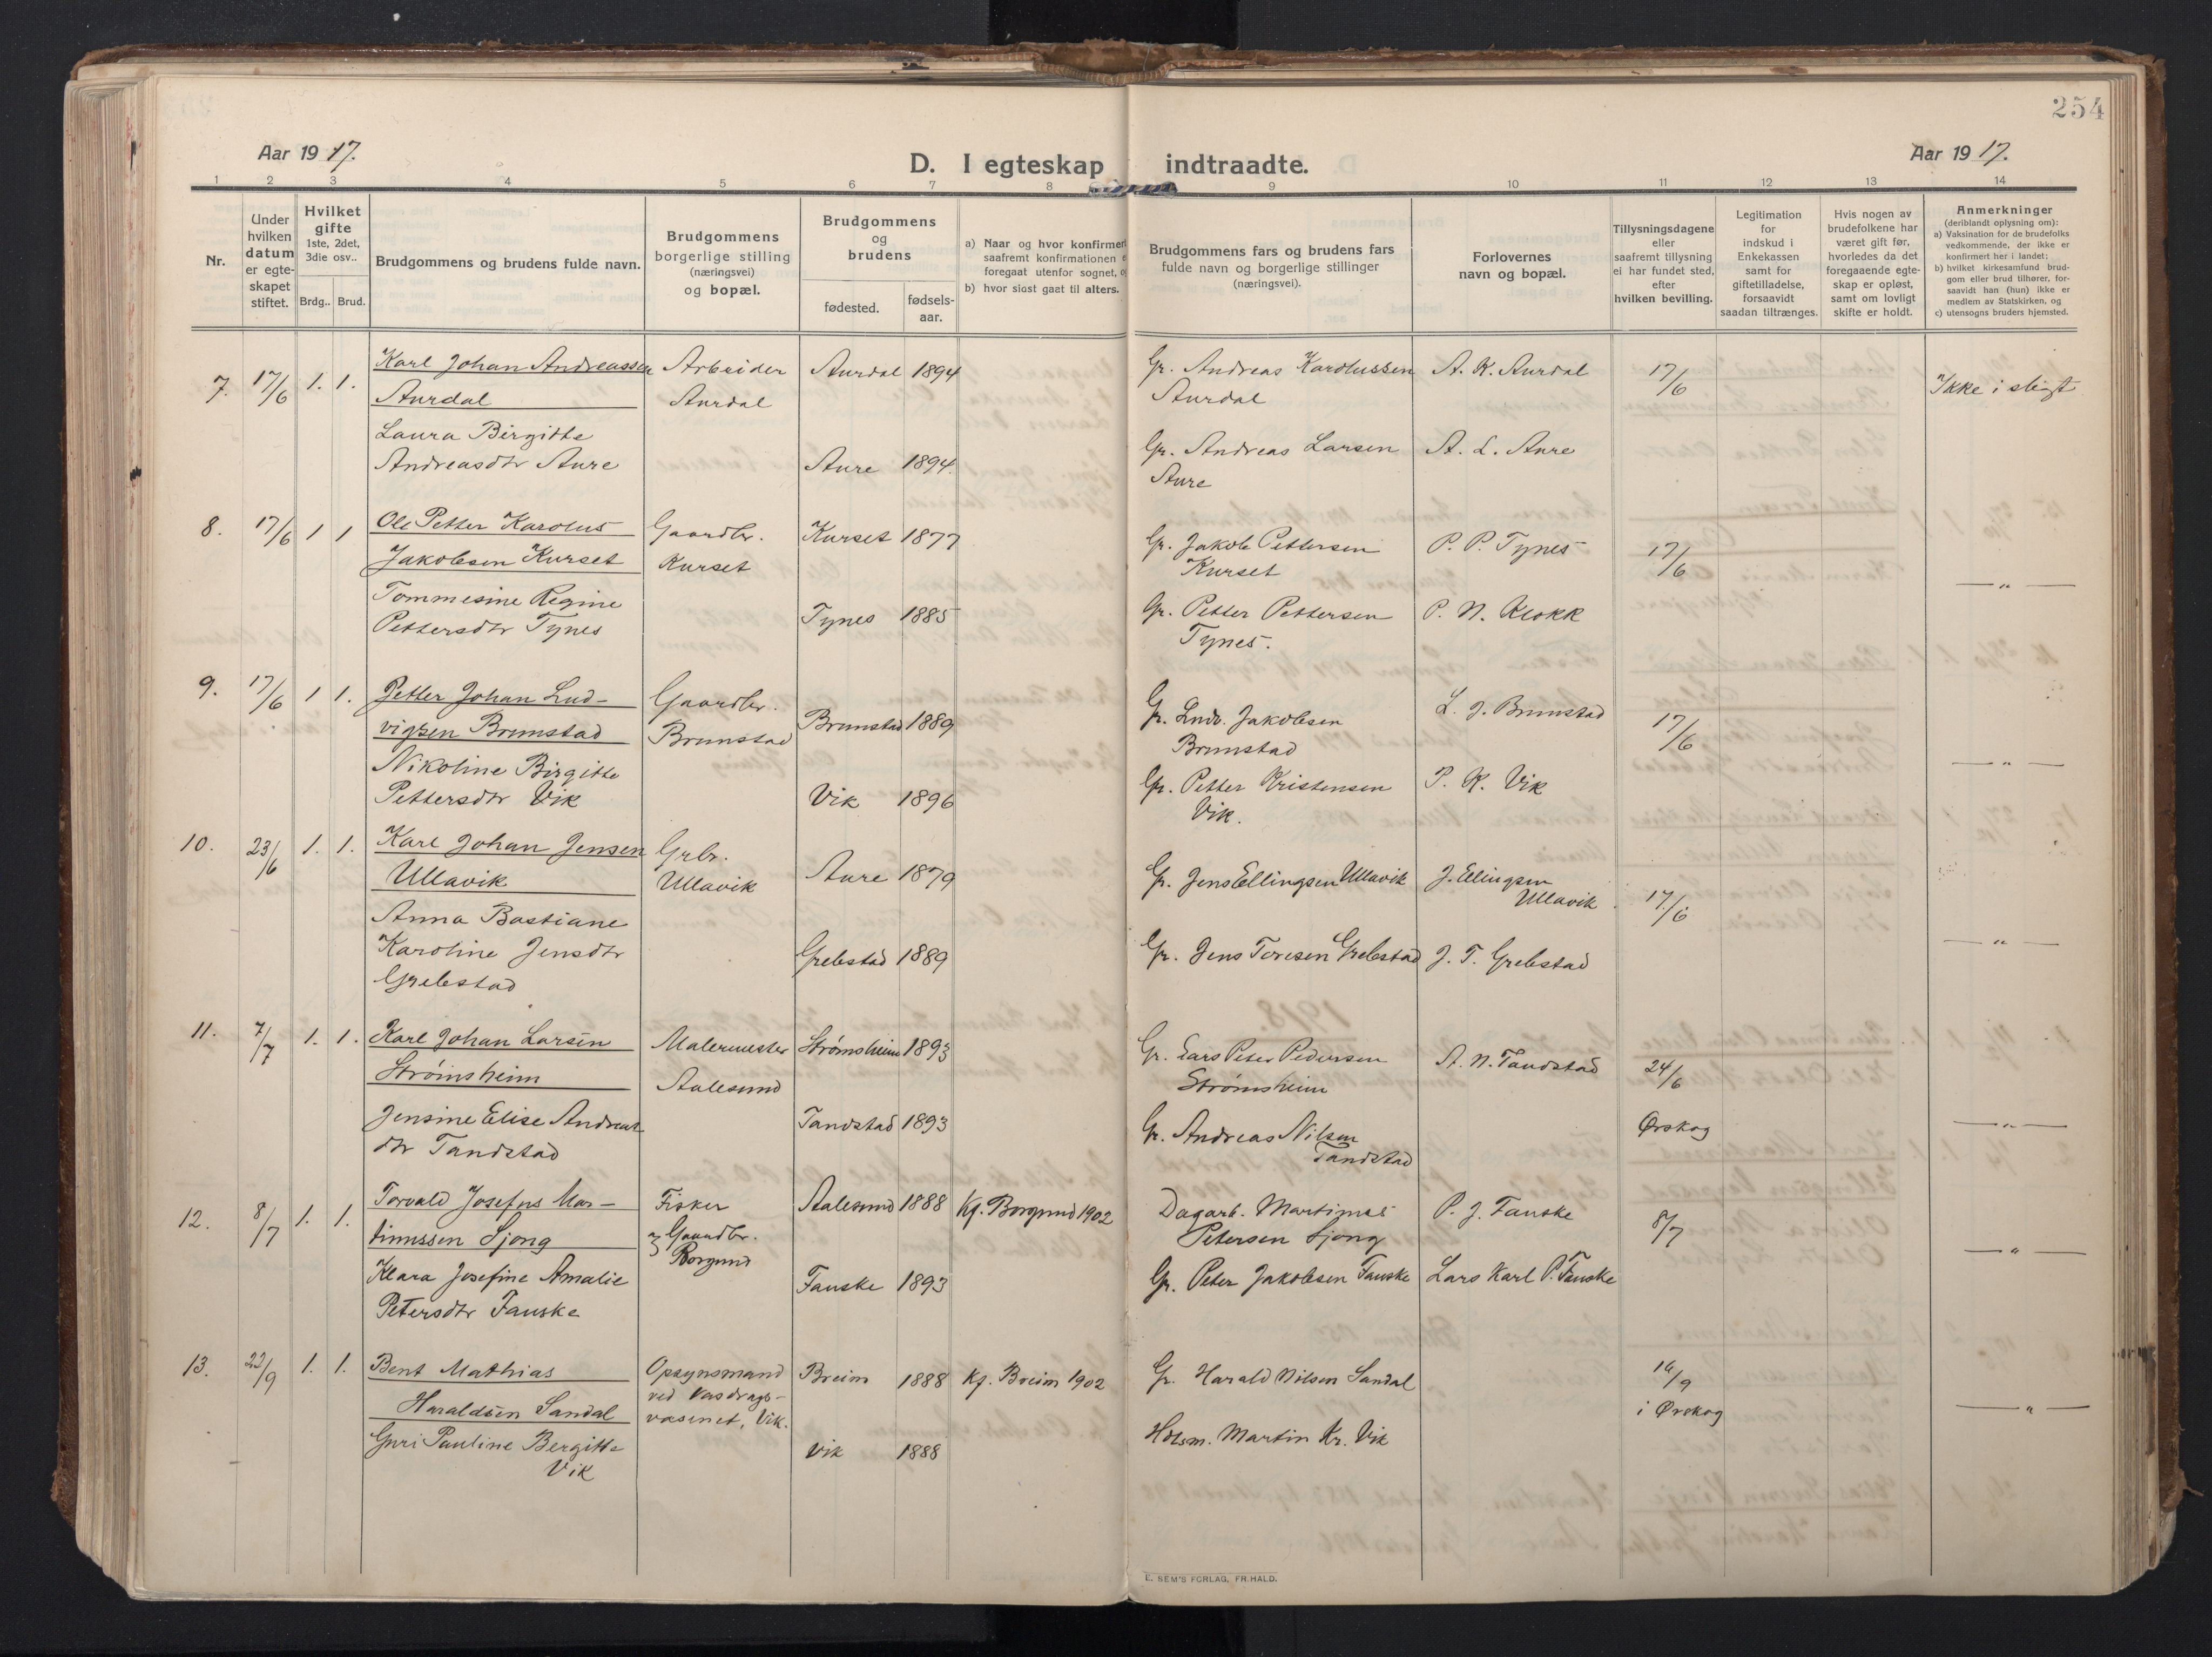 254
Aar 1917.
D. I egteskap indtraadte.
Aar 1917.
1 2 3 4 5 6 7 8 9 10 11 12 13 14
Nr.
Under
hvilken
datum
er egte-
skapet
stiftet.
Hvilket
gifte
1ste, 2det,
3die osv..
Brdg.. Brud.
Brudgommens og brudens fulde navn.
Brudgommens
borgerlige stilling
(næringsvei)
og bopæl.
Brudgommens
og
brudens
fødested.
fødsels-
aar.
a) Naar og hvor konfirmert
saafremt konfirmationen e
foregaat utenfor sognet, o
b) hvor sidst gaat til alters.
Brudgommens fars og brudens fars
fulde navn og borgerlige stillinger
(næringsvei).
Forlovernes
navn og bopæl.
Tillysningsdagene
eller
saafremt tillysning
ei har fundet sted,
efter
hvilken bevilling.
Legitimation
for
indskud i
Enkekassen
samt for
giftetilladelse,
forsaavidt
saadan tiltrænges.
Hvis nogen av
brudefolkene har
været gift før,
hvorledes da det
foregaaende egte-
skap er opløst,
samt om lovligt
skifte er holdt.
Anmerkninger
(deriblandt oplysning om):
a) Vaksination for de brudefolks
vedkommende, der ikke er
konfirmert her i landet;
b) hvilket kirkesamfund brud-
gom eller brud tilhører, for-
saavidt han (hun) ikke er
medlem av Statskirken, og
c) utensogns bruders hjemsted.
7. 17/6 1. 1. Karl Johan Andreassen Arbeider Aurdal 1894 Gr. Andreas Karolussen A. K. Aurdal 17/6 Ikke i slegt
Aurdal Aurdal Aurdal
Laura Birgitte
Andreasdtr Aure Aure 1894. Gr. Andreas Larsen A. L. Aure
Aure
8. 17/6 1 1 Ole Petter Karolus Gaardbr. Kurset 1877 Gr. Jakob Pettersen P. P. Tynes 17/6 — " —
Jakobsen Kurset Kurset Kurset
Tommesine Regine
Pettersdtr Tynes Tynes 1885 Gr. Petter Pettersen P. N. Klokk
Tynes.
9. 17/6 1 1. Petter Johan Lud- Gaardbr. Brunstad 1889 Gr. Ludv. Jakobsen L. J. Brunstad 17/6 — " —
vigsen Brunstad Brunstad Brunstad
Nikoline Birgitte
Pettersdtr Vik Vik 1896 Gr. Petter Kristensen P. K. Vik
Vik.
10. 23/6 1. 1. Karl Johan Jensen Grbr. Aure 1879 Gr. Jens Ellingsen Ullavik J. Ellingsen 17/6 — " —
Ullavik Ullavik Ullavik
Anna Bastiane
Karoline Jensdtr Grebstad 1889 Gr. Jens Toresen Grebstad J. T. Grebstad
Grebstad
11. 7/7 1. 1. Karl Johan Larsen Malermester Strømsheim 1893 Gr. Lars Peter Pedersen A. N. Tandstad 24/6
Strømsheim Aalesund Strømsheim
Jensine Elise Andreas Tandstad 1893 Gr. Andreas Nilsen Ørskog — " —
dtr Tandstad Tandstad
12. 8/7 1. 1. Torvald Josefus Mar- Fisker Aalesund 1888 Kf. Borgund 1902 Dagarb. Martinus P. J. Fauske 8/7 — " —
tinussen Sjong Gaardbr. Petersen Sjong
Borgund
Klara Josefine Amalie Fauske 1893 Gr. Peter Jakobsen Fauske Lars Karl P. Fauske
Petersdtr Fauske
13. 22/9 1. 1. Bent Mathias Opsynsmand Breim 1888 Kf. Breim 1902 Gr. Harald Nilsen Sandal 16/9
Haraldsen Sandal ved Vasdrags- i Ørskog — " —
væsenet, Vik.
Guri Pauline Bergitte Vik 1888 Husm. Martin Kr. Vik
Vik
E. SEM'S FORLAG, FR.HALD.